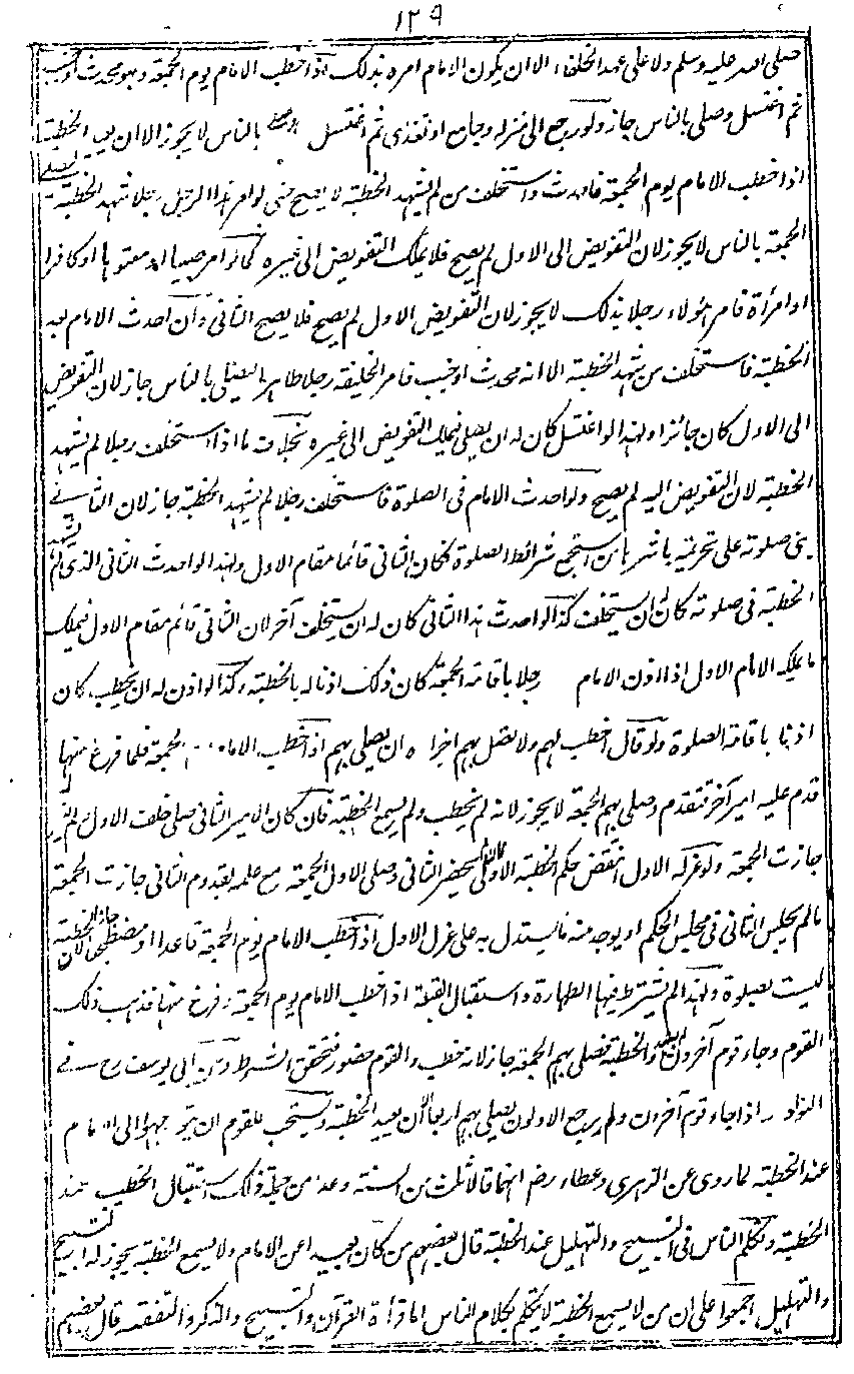 ١٢٩
صلى الله عليه وسلم ولا على عهد الخلفاء الا ان يكون الامام امره بذلك اذا خطب الامام يوم الجمعة وهو محدث او جنب
ثم اغتسل وصلى بالناس جاز ولو رجع الى منزله وجامع او تغذى ثم اغتسل وصلى بالناس لا يجوز الا ان يعيد الخطبة
اذا خطب الامام يوم الجمعة فاحدث واستخلف من لم يشهد الخطبة لا يصح حتى لو امر هذا الرجل رجلا شهد الخطبة ليصلي
الجمعة بالناس لا يجوز لان التفويض الى الاول لم يصح فلا يملك التفويض الى غيره كما لو امر صبيا او معتوها او كافرا
او امرأة فامر هؤلاء رجلا بذلك لا يجوز لان التفويض الاول لم يصح فلا يصح الثاني وان احدث الامام بعد
الخطبة فاستخلف من شهد الخطبة الا انه محدث او جنب فامر الخليفة رجلا طاهرا ليصلي بالناس جاز لان التفويض
الى الاول كان جائزا ولهذا لو اغتسل كان له ان يصلي فيملك التفويض الى غيره بخلاف ما اذا استخلف رجلا لم يشهد
الخطبة لان التفويض اليه لم يصح ولو احدث الامام في الصلوة فاستخلف رجلا لم يشهد الخطبة جاز لان الثاني
بنى صلوته على تحريمة باشرها من استجمع شرائط الصلوة فكان الثاني قائما مقام الاول ولهذا لو احدث الثاني الذي لم يشهد
الخطبة في صلوته كان له ان يستخلف كذا لو احدث هذا الثاني كان له ان يستخلف آخر لان الثاني قائم مقام الاول فيملك
ما يملك الامام الاول اذا اذن الامام رجلا باقامة الجمعة كان ذلك اذنا له بالخطبة وكذا لو اذن له ان يخطب كان
اذنا باقامة الصلوة ولو قال اخطب لهم ولا تصل بهم اجزاه ان يصلي بهم اذا خطب الامام الجمعة فلما فرغ منها
قدم عليه امير آخر فتقدم وصلى بهم الجمعة لا يجوز لانه لم يخطب ولم يسمع الخطبة فان كان الامير الثاني صلى خلف الاول
جازت الجمعة ولو عزله الاول انتقض حكم الخطبة الاولى يحضر الثاني وصلى الاول الجمعة مع علمه بقدوم الثاني جازت الجمعة
ما لم يجلس الثاني في مجلس الحكم او يوجد منه ما يستدل به على عزل الاول اذا خطب الامام يوم الجمعة قاعدا او مضطجعا جاز لان الخطبة
ليست بصلوة ولهذا لم يشترط فيها الطهارة واستقبال القبلة اذا خطب الامام يوم الجمعة وفرغ منها فذهب ذلك
القوم وجاء قوم آخرون والخطبة فصلى بهم الجمعة جاز لانه خطب والقوم حضور فتحقق الشرط وعن ابي يوسف رح في
النوادر اذا جاء قوم آخرون ولم يرجع الاولون يصلي بهم اربعا الا ان يعيد الخطبة ويستحب للقوم ان يتوجهوا الى الامام
عند الخطبة لما روي عن الزهري وعطاء رضي انهما قالا ثلث من السنة وعد من جملة ذلك استقبال الخطيب عند
الخطبة وتكلم الناس في التسبيح والتهليل عند الخطبة قال بعضهم من كان بعيدا عن الامام ولا يسمع الخطبة يجوز له التسبيح
والتهليل اجمعوا على ان من لا يسمع الخطبة لا يتكلم بكلام الناس اما قرأة القرآن والتسبيح والذكر والتفقه قال بعضهم